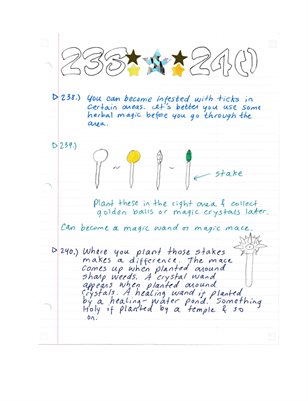 238 240
238.) You can become infested with ticks in
certain areas. It's better you use some
herbal magic before you go through the
area.
239.)
stake
Plant these in the right area & collect
golden balls or magic crystals later.
Can become a magic wand or magic mace.
240.) Where you plant those stakes
makes a difference. The mace
comes up when planted around
sharp weeds. A crystal wand
appears when planted around
crystals. A healing wand if planted
by a healing-water pond. Something
Holy if planted by a temple & so
on.